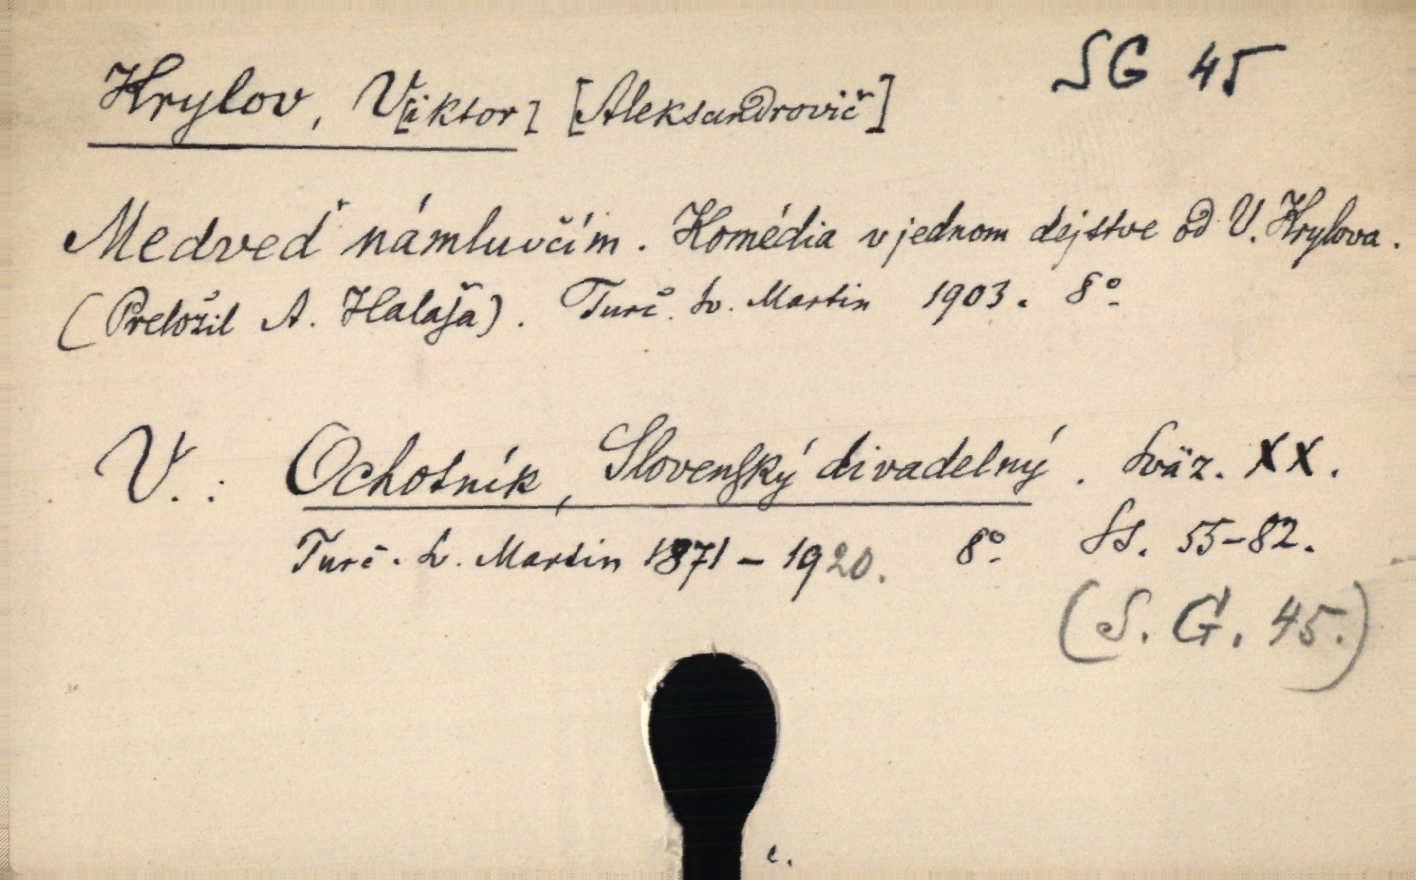 SG 45
Krylov, V[iktor] [Aleksandrovič]
Medveď námluvčím. Komédia v jednom dejstve od V. Krylova.
(Preložil A. Halaša). Turč. Sv. Martin 1903. 8°.
V.: Ochotník, Slovenský divadelný. Sväz. XX.
Turč. Sv. Martin 1871–1920. 8°. Ss. 55–82.
(S. G. 45.)
c.